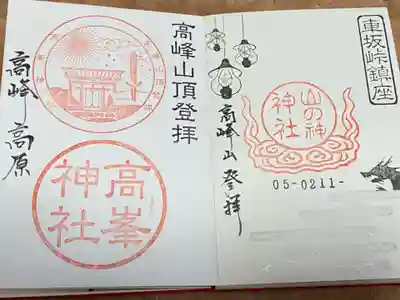 車坂峠鎮座
山の神
神社
高峰山登拝
05-0211-
高峰山頂登拝
高峯
神社
高峰高原